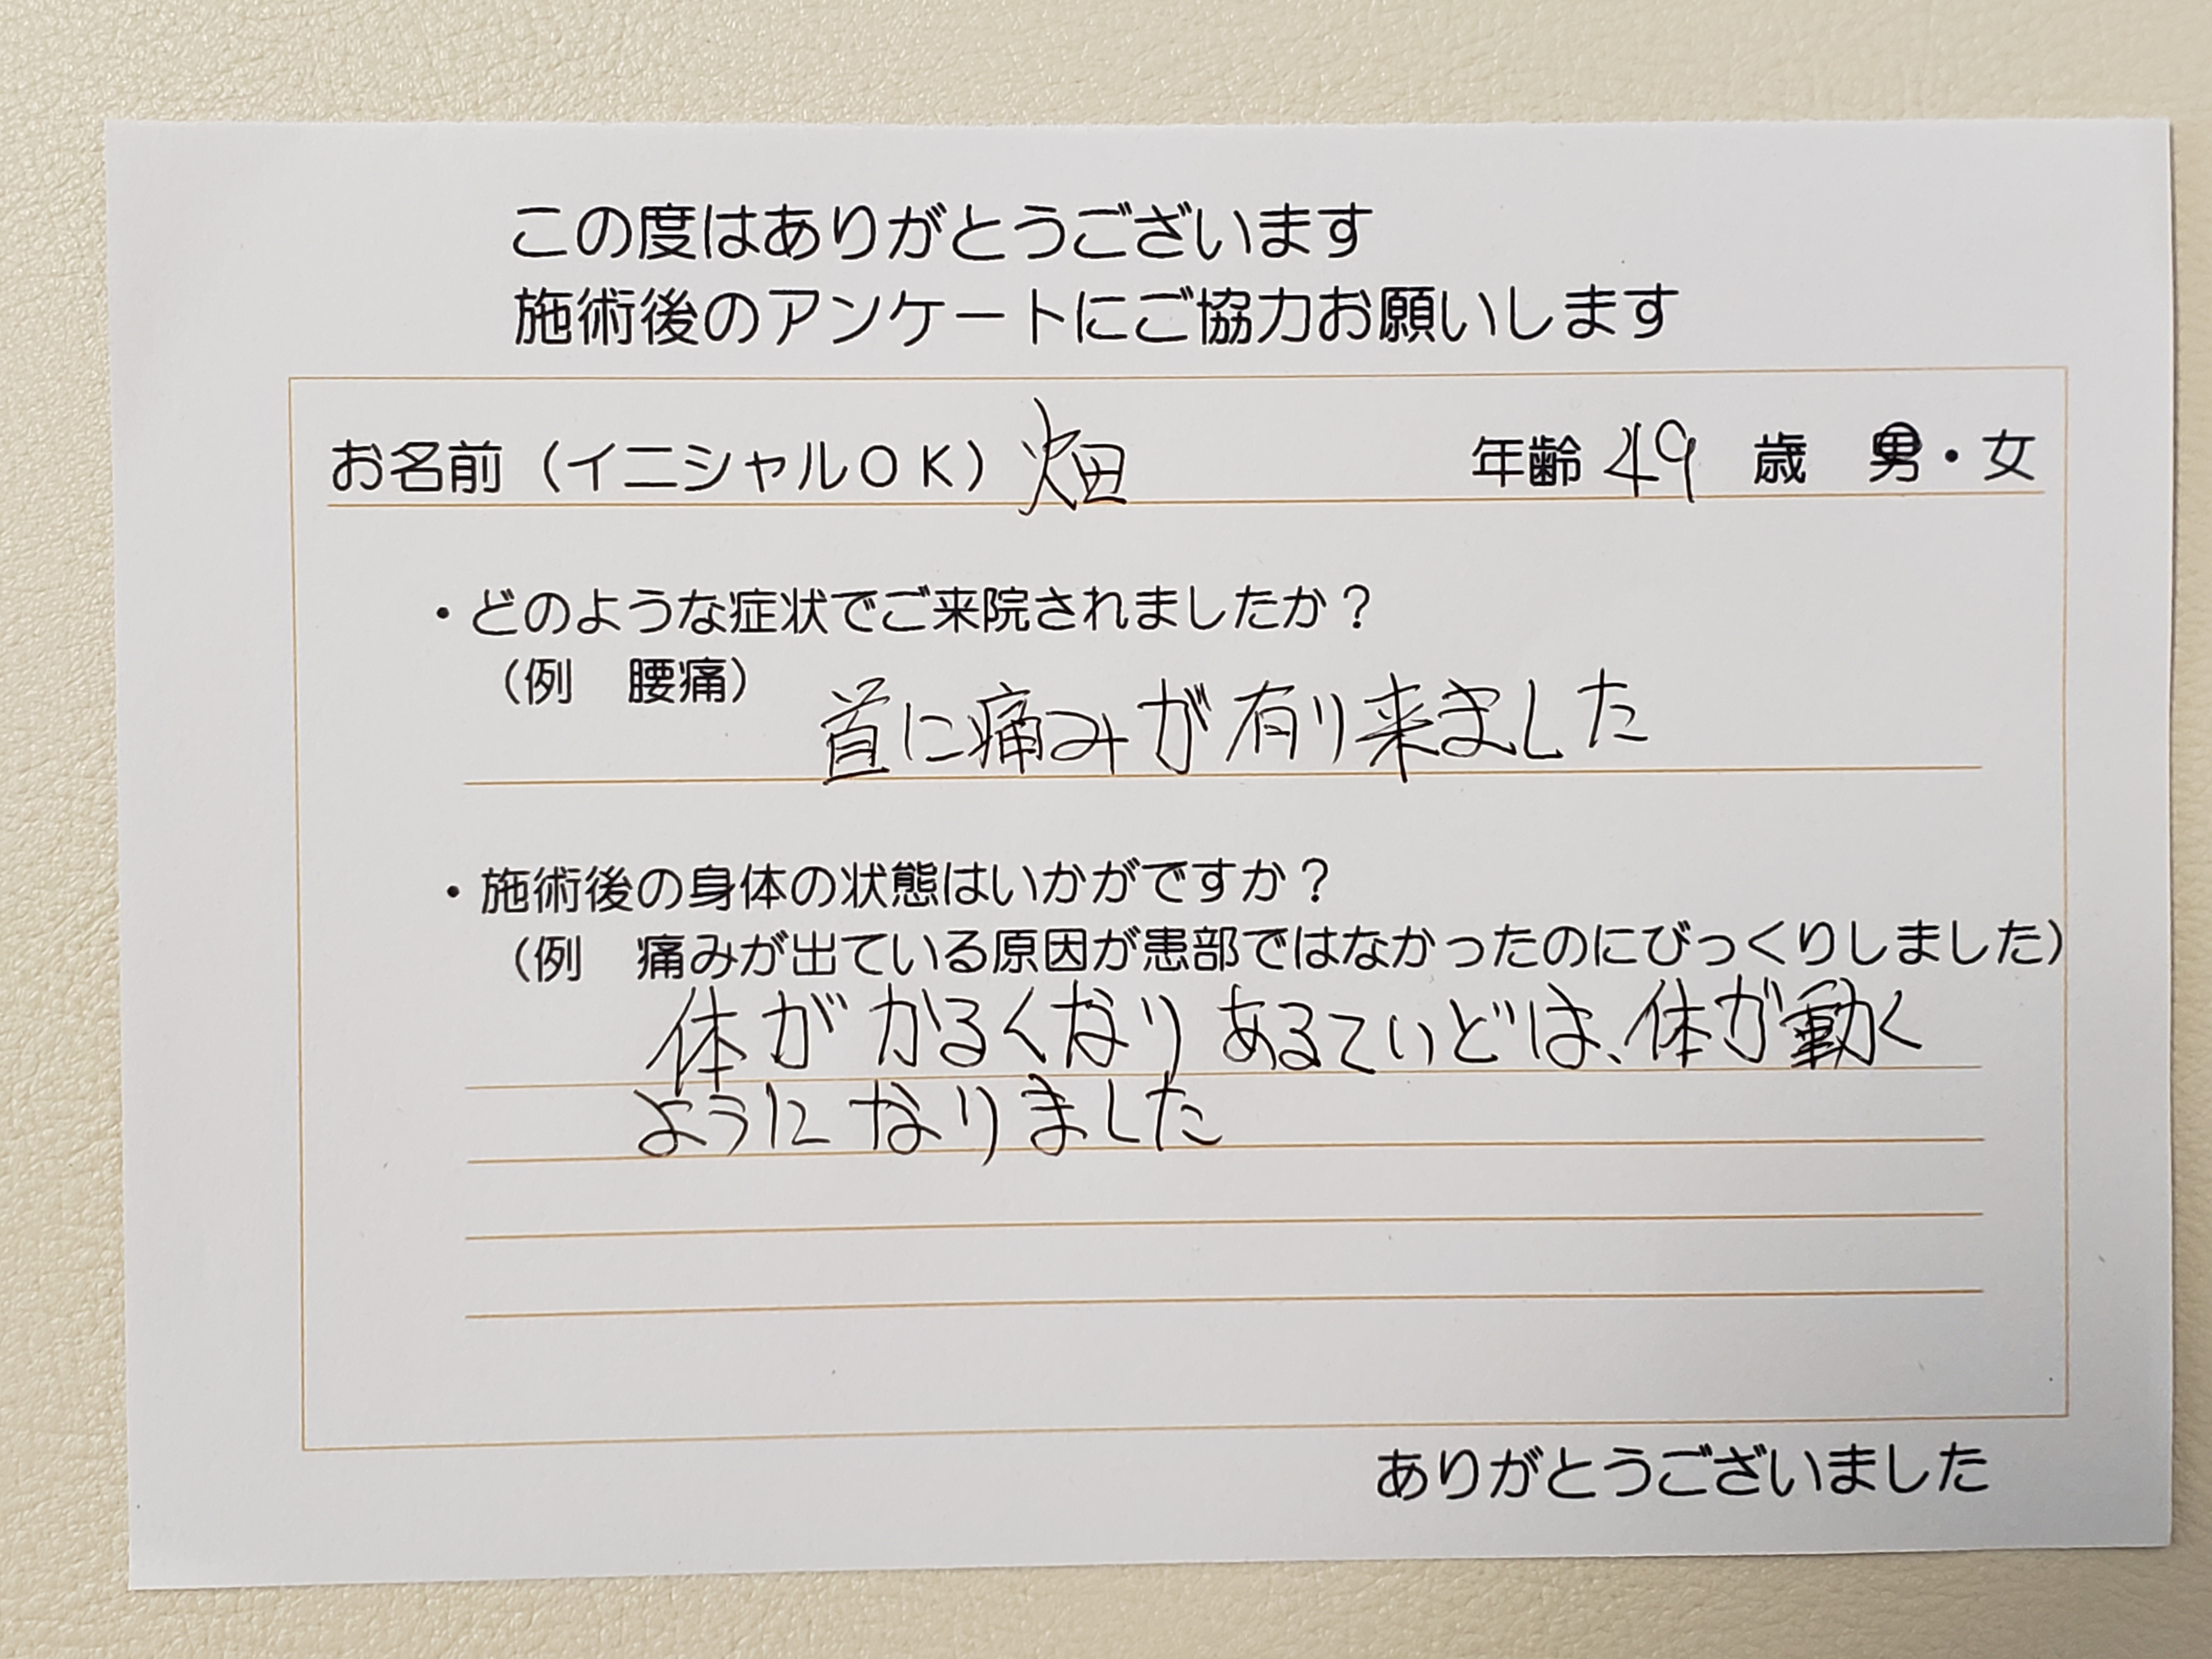 この度はありがとうございます
施術後のアンケートにご協力お願いします
お名前（イニシャルＯＫ）畑　年齢 49 歳　男・女
・どのような症状でご来院されましたか？
（例　腰痛）
首に痛みが有り来ました
・施術後の身体の状態はいかがですか？
（例　痛みが出ている原因が患部ではなかったのにびっくりしました）
体がかるくなりあるていどは、体が動く
ようになりました
ありがとうございました